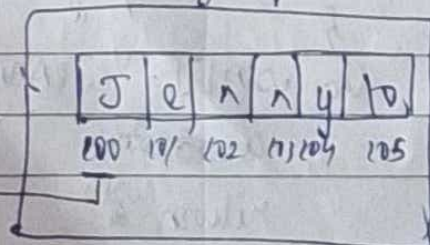 J e n n y \0
100 101 102 103 104 105